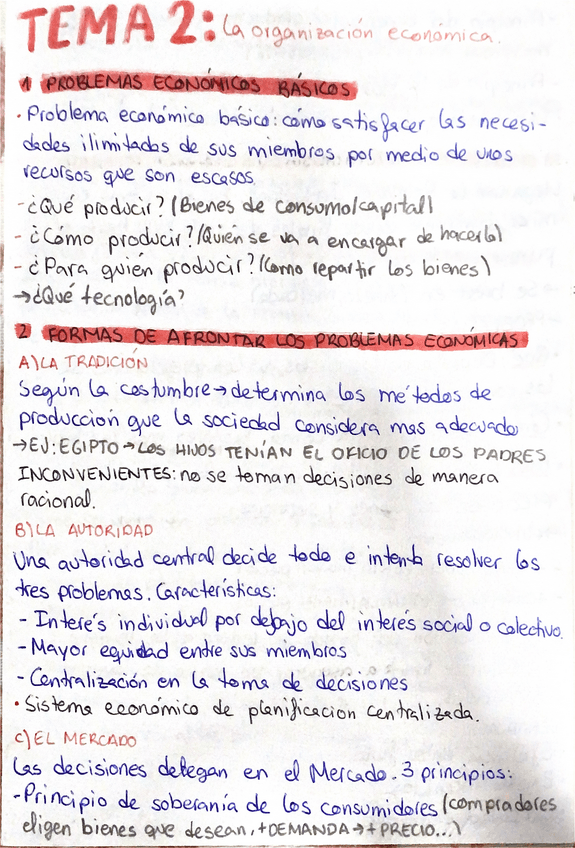 TEMA 2: La organización económica.
1 PROBLEMAS ECONÓMICOS BÁSICOS
· Problema económico básico: cómo satisfacer las necesi-
dades ilimitadas de sus miembros por medio de unos
recursos que son escasos
- ¿Qué producir? (Bienes de consumo/capital)
- ¿Cómo producir? (Quien se va a encargar de hacerlo)
- ¿Para quién producir? (Como repartir los bienes)
→ ¿Qué tecnología?
2 FORMAS DE AFRONTAR LOS PROBLEMAS ECONÓMICAS
A) LA TRADICIÓN
Según la costumbre → determina los métodos de
producción que la sociedad considera mas adecuado
→ EJ: EGIPTO → LOS HIJOS TENÍAN EL OFICIO DE LOS PADRES
INCONVENIENTES: no se toman decisiones de manera
racional.
B) LA AUTORIDAD
Una autoridad central decide todo e intenta resolver los
tres problemas. Características:
- Interés individual por debajo del interés social o colectivo.
- Mayor equidad entre sus miembros
- Centralización en la toma de decisiones
· Sistema económico de planificacion centralizada.
C) EL MERCADO
Las decisiones delegan en el Mercado. 3 principios:
- Principio de soberanía de los consumidores (compradores
eligen bienes que desean, + DEMANDA → + PRECIO...)